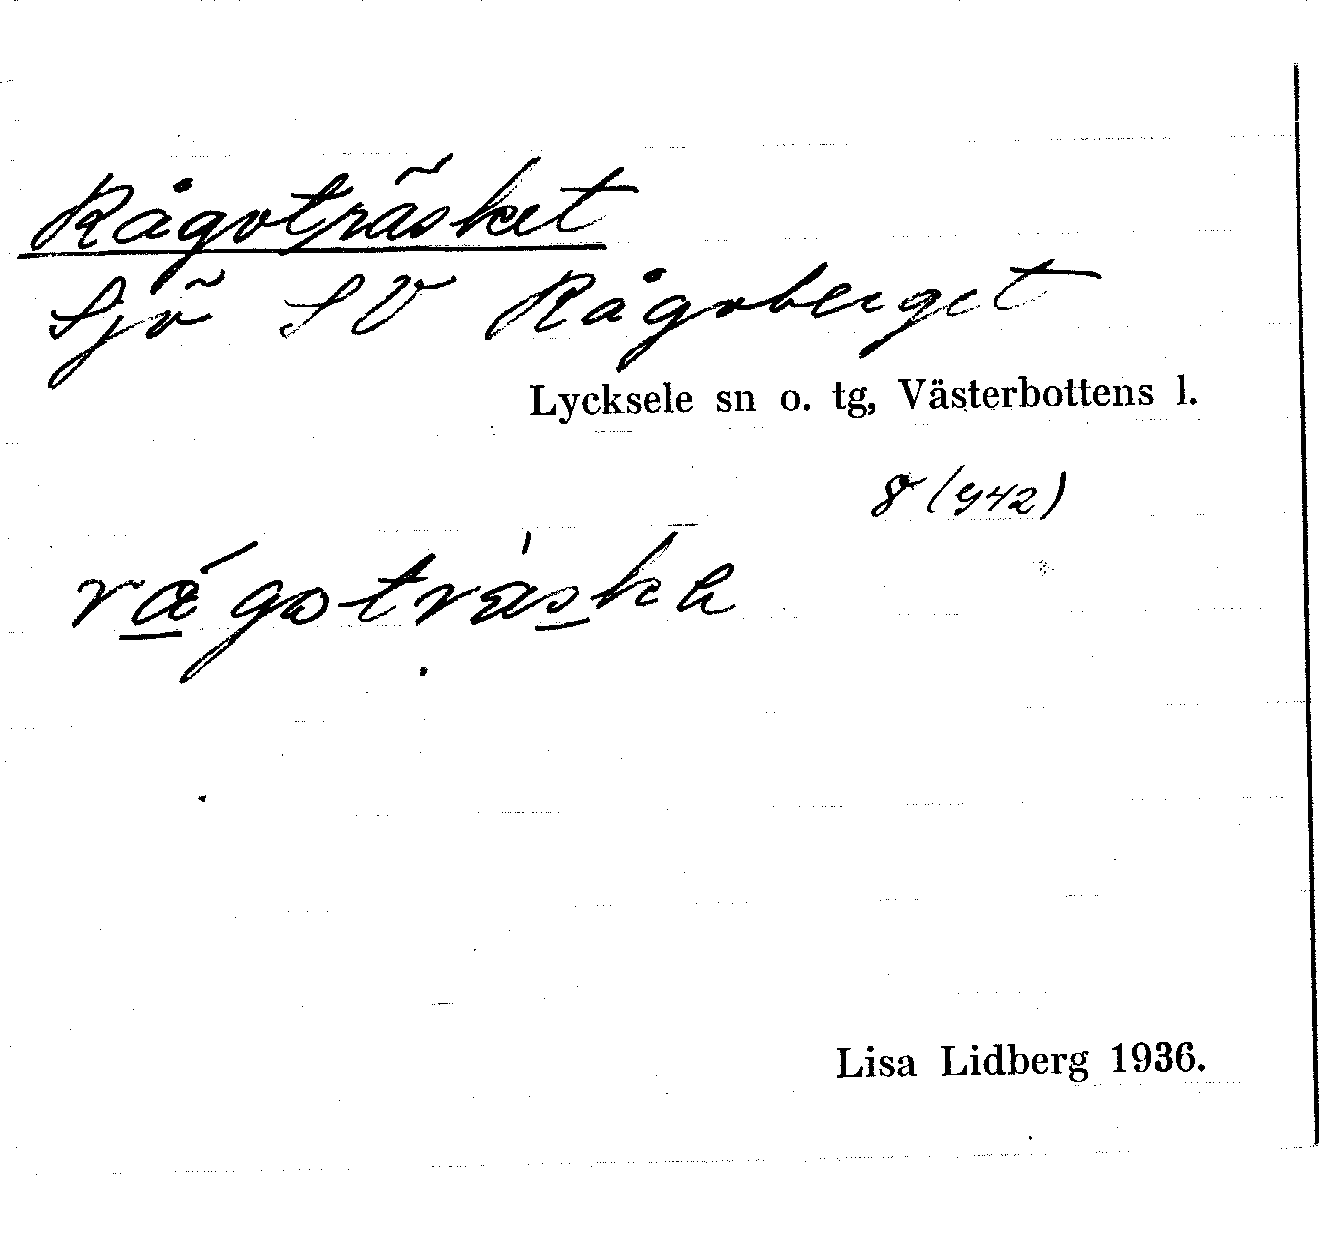 Rågoträsket
Sjö SV Rågoberget
Lycksele sn o. tg, Västerbottens l.
8 (942)
rágoträska
Lisa Lidberg 1936.